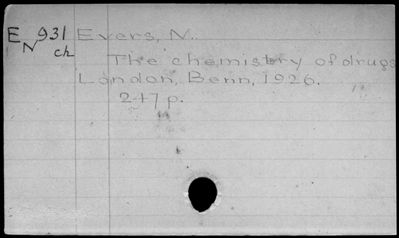 E 931 Evers, N.
N ch
The chemistry of drugs
London, Benn, 1926.
247 p.